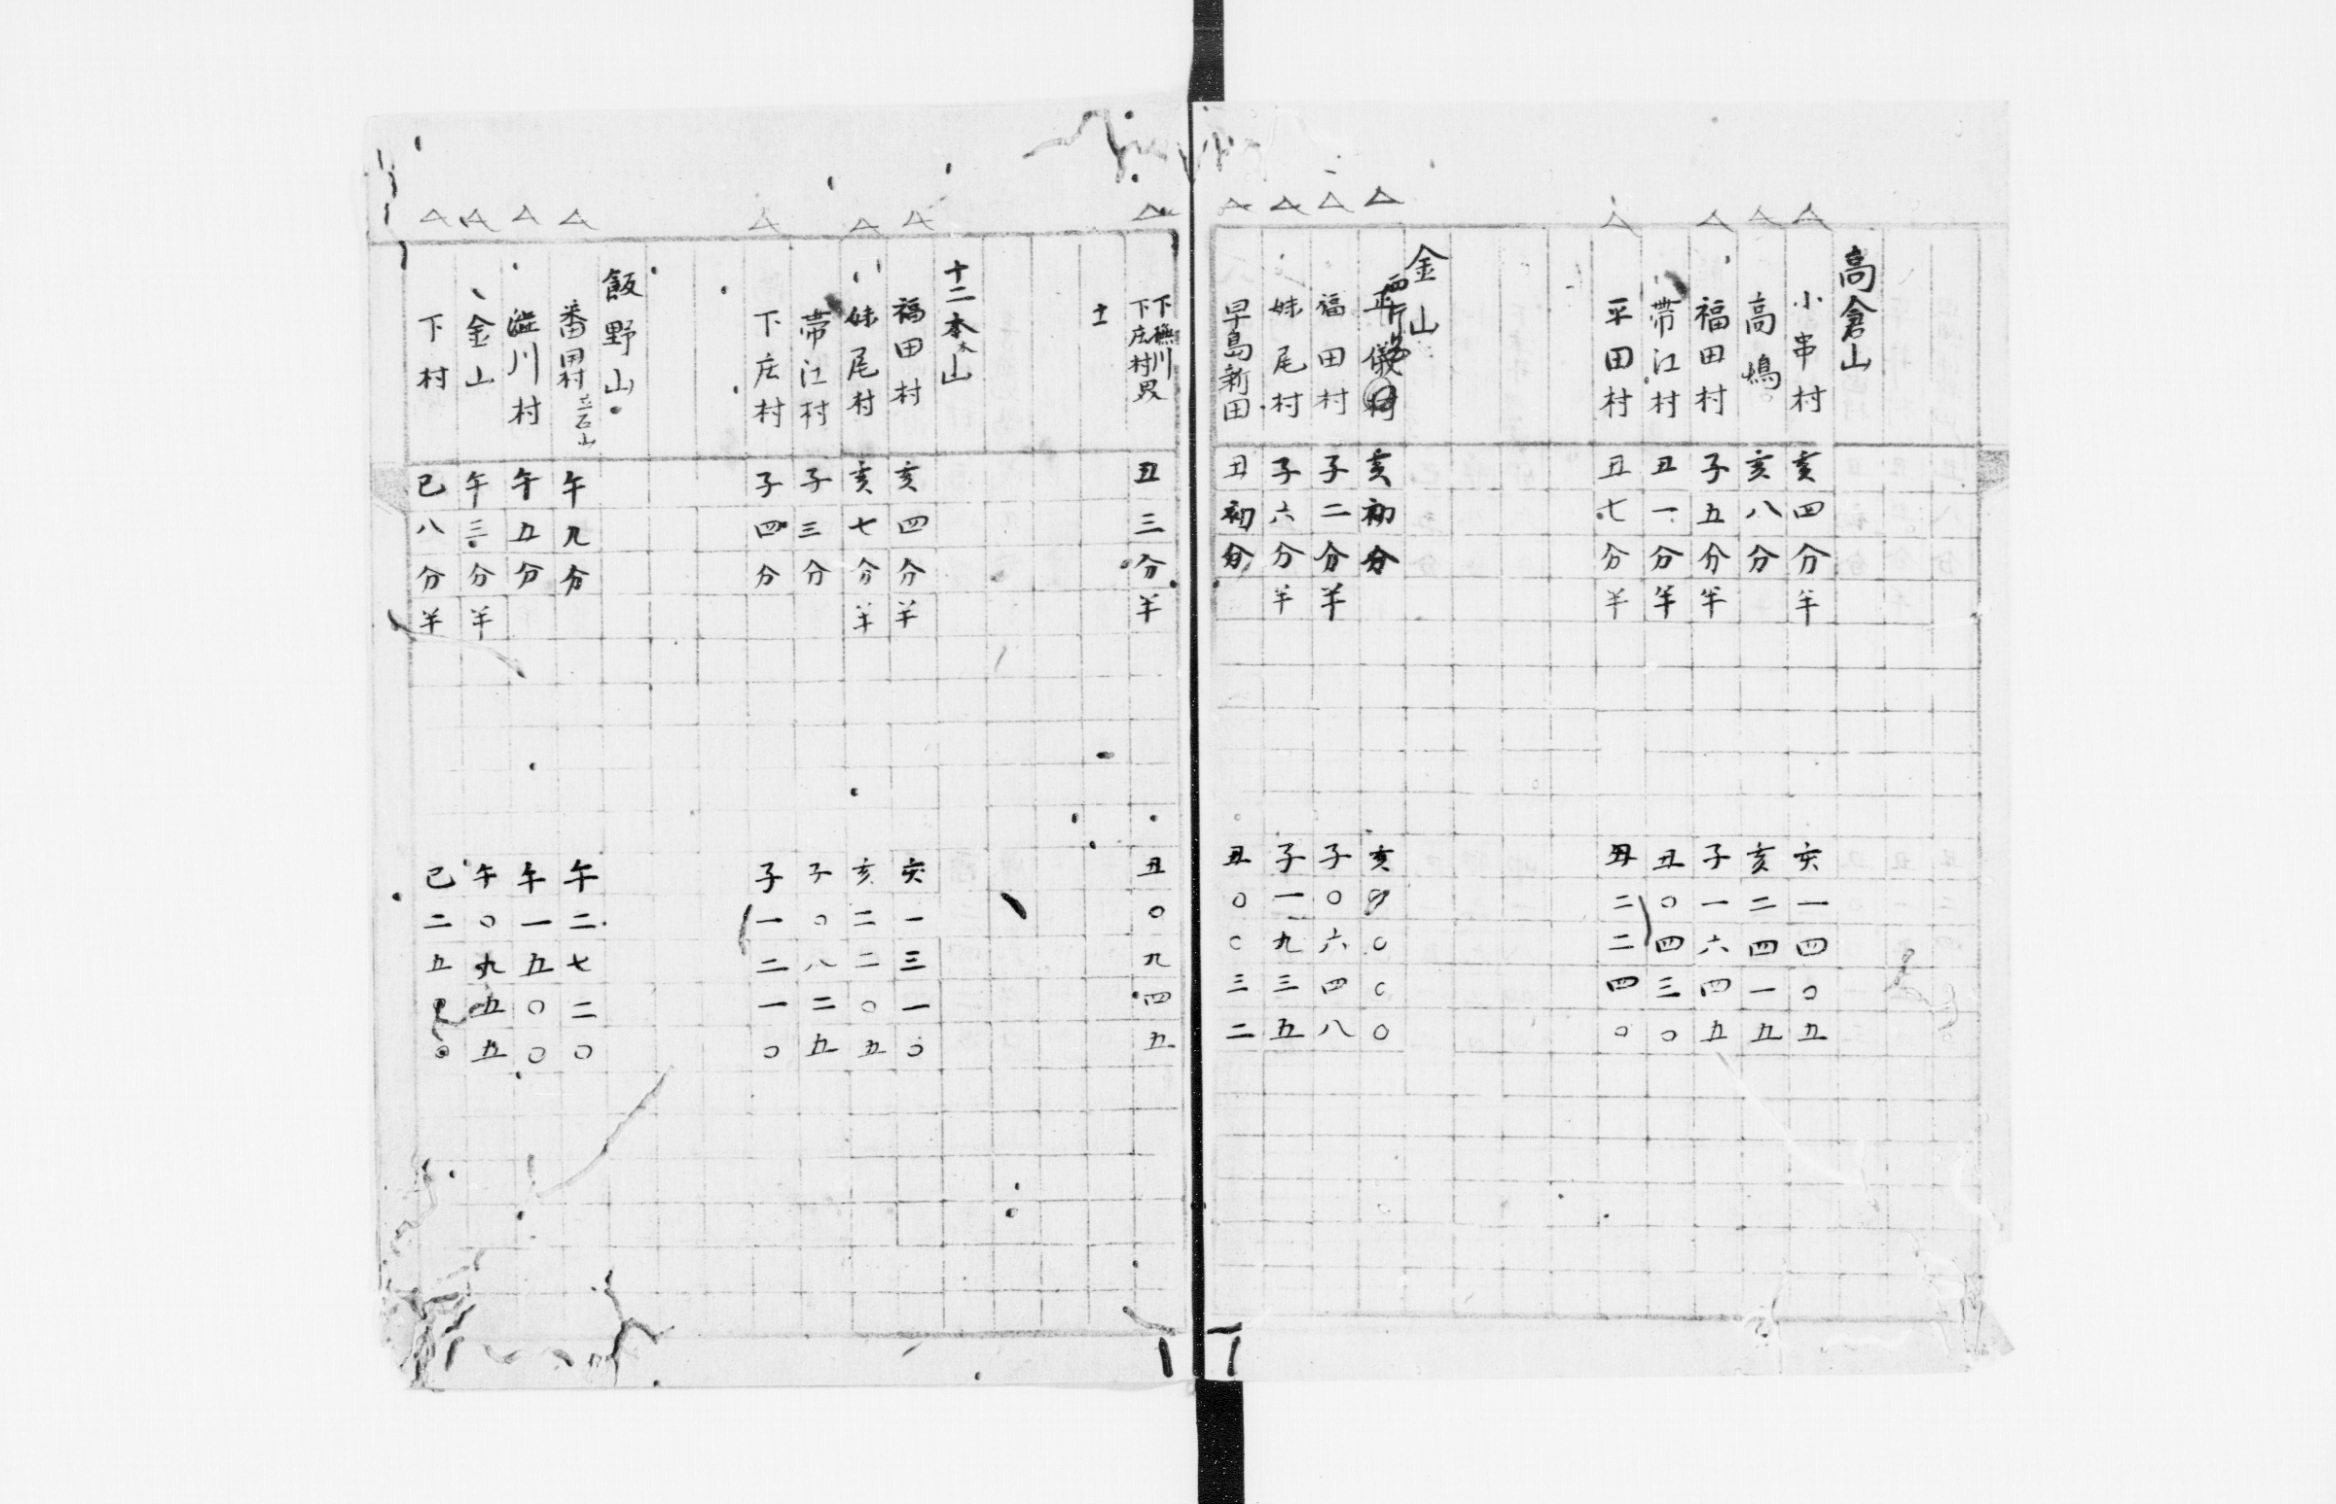 高倉山
小串村 亥四分半 亥一四〇五
高嶋 亥八分 亥二四一五
福田村 子五分半 子一六四五
帯江村 丑一分半 丑〇四三〇
平田村 丑七分半 丑二二四〇
金山
亥初分 亥〇〇〇〇
福田村 子二分半 子〇六四八
妹尾村 子六分半 子一九三五
早島新田 丑初分 丑〇〇三二
下撫川
下庄村界 丑三分半 丑〇九四五
十二本木山
福田村 亥四分半 亥一三一〇
妹尾村 亥七分半 亥二二〇五
帯江村 子三分 子〇八二五
下庄村 子四分 子一二一〇
飯野山
番田村 立石山 午九分 午二七二〇
澁川村 午五分 午一五〇〇
金山 午三分半 午〇九五五
下村 巳八分半 巳二五〇〇